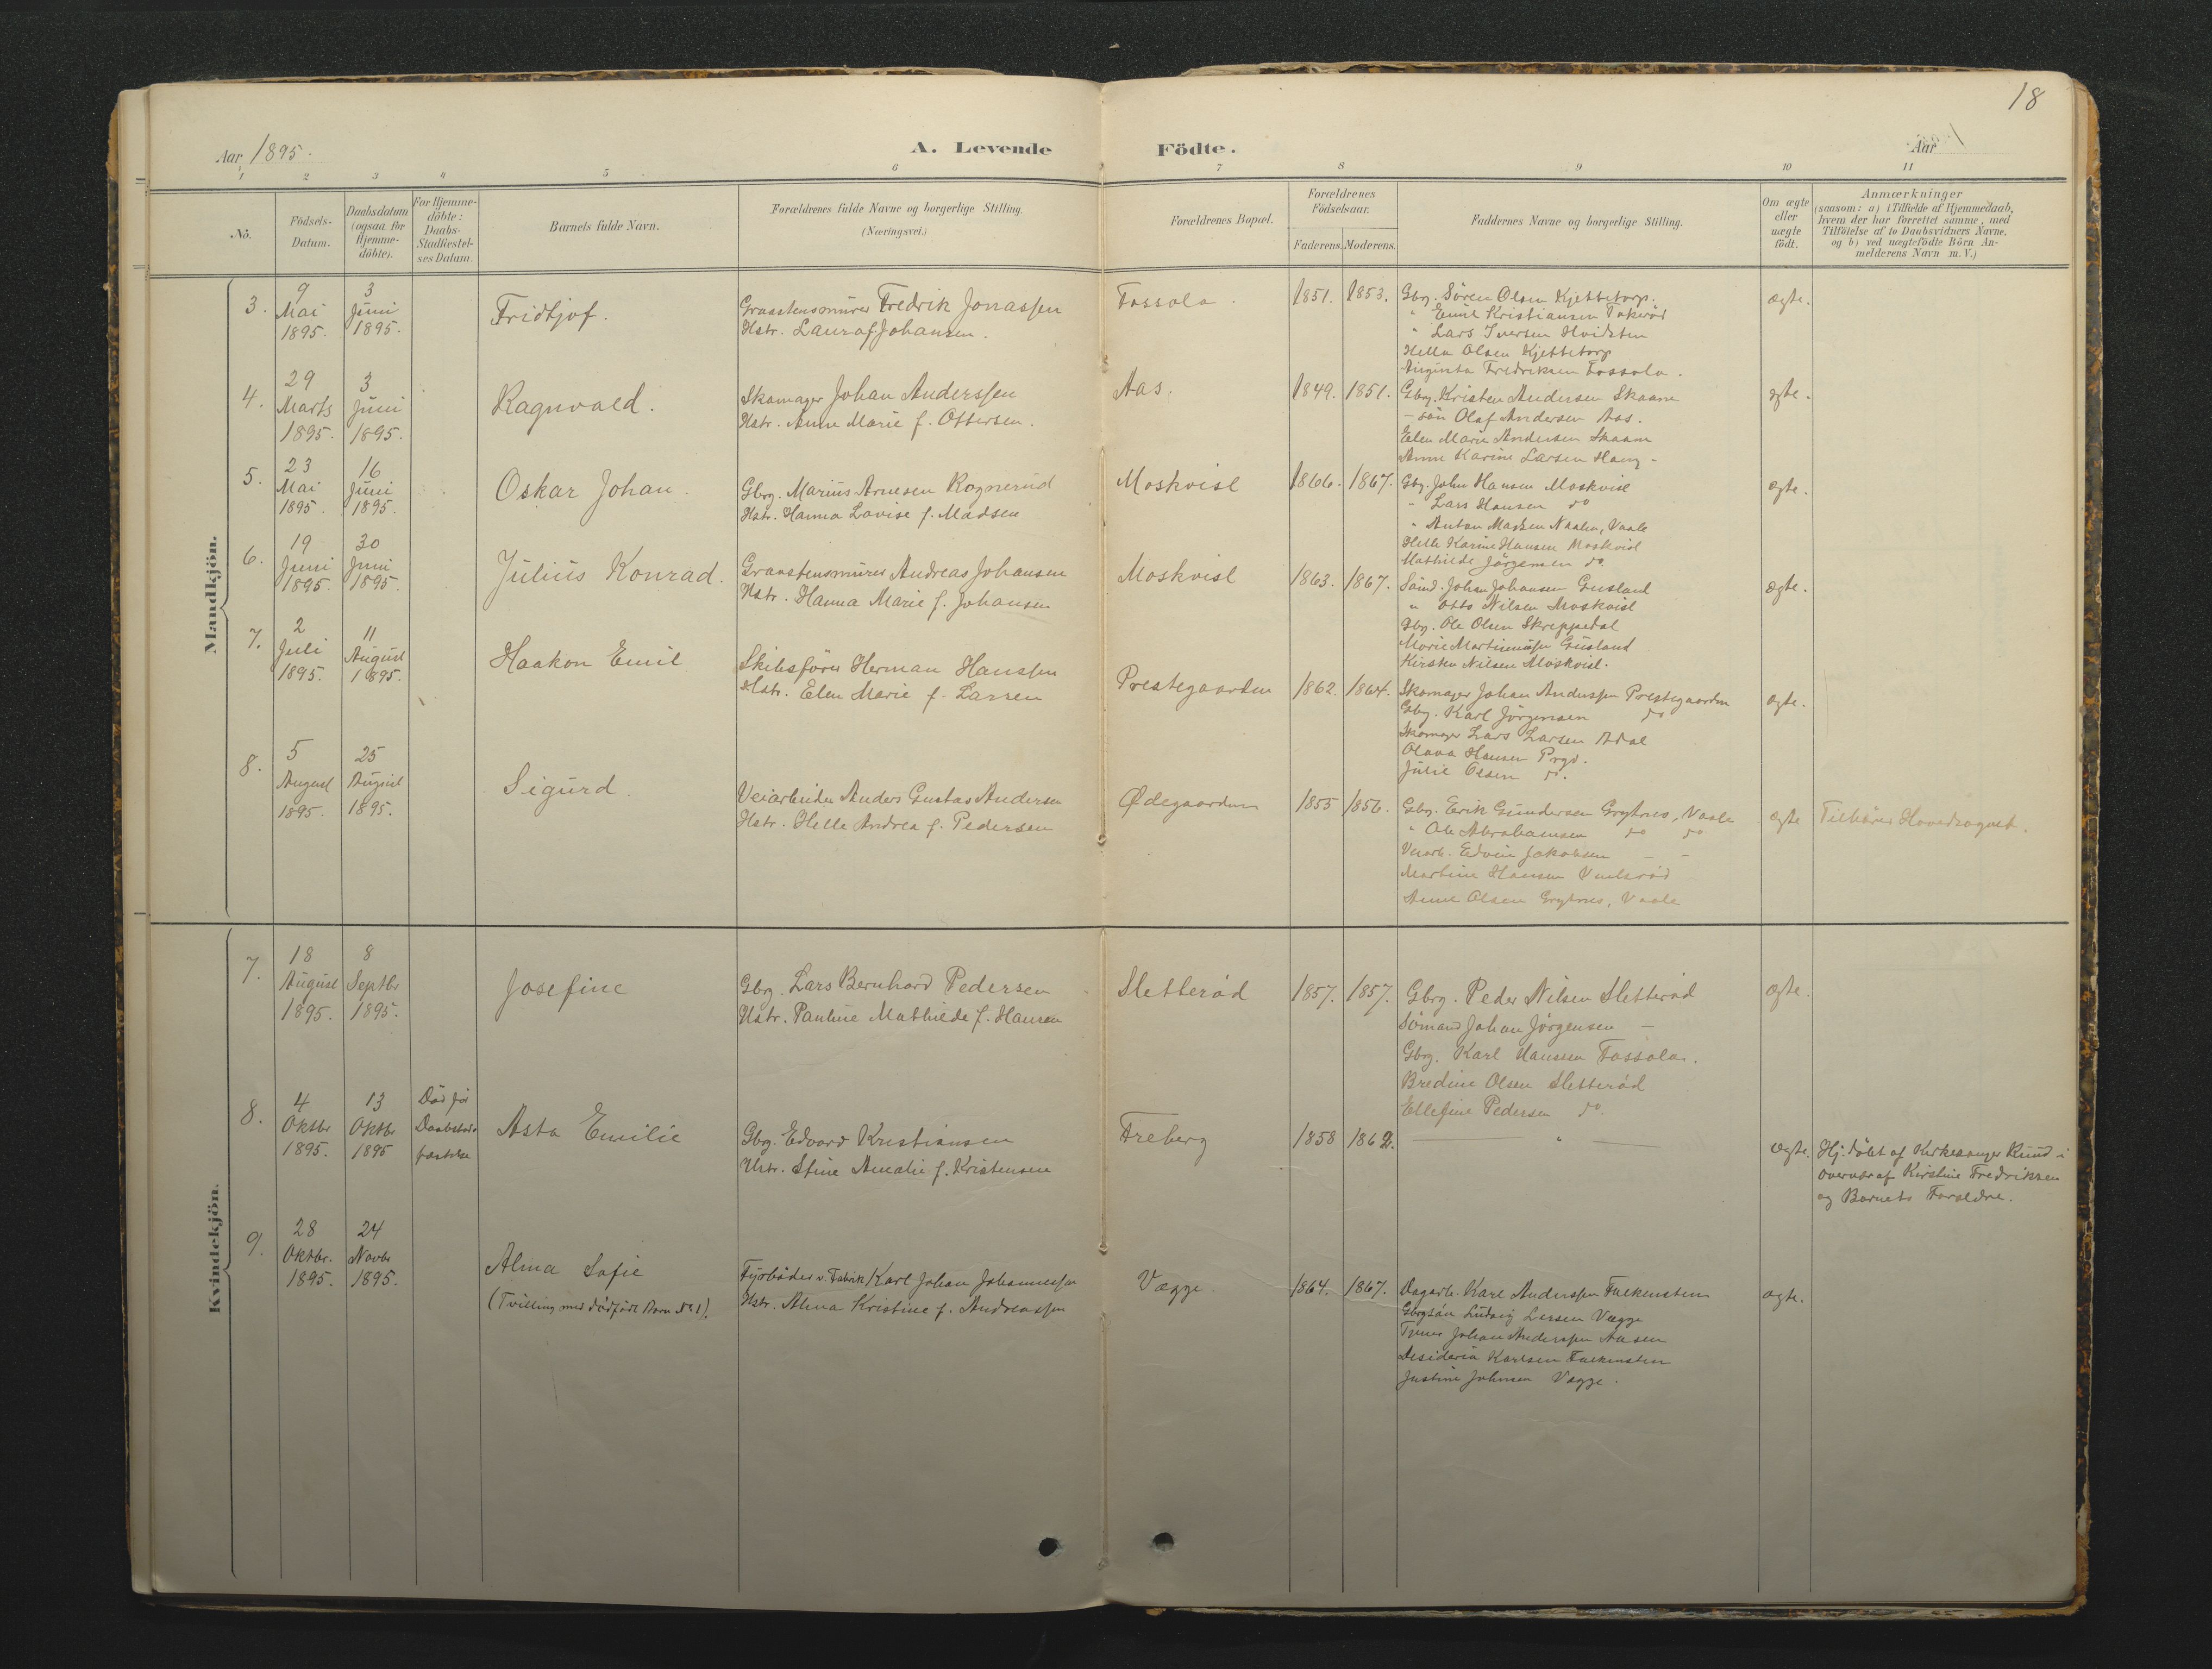 18
Aar 1895.
A. Levende Födte.
Aar
1 2 3 4 5 6 7 8 9 10 11
No.
Födsels-
Datum.
Daabsdatum
(ogsaa for
Hjemme-
döbte).
For Hjemme-
döbte:
Daabs-
Stadfæstel-
ses Datum.
Barnets fulde Navn.
Forældrenes fulde Navne og borgerlige Stilling.
(Næringsvei.)
Forældrenes Bopæl.
Forældrenes
Födselsaar.
Faderens. Moderens.
Faddernes Navne og borgerlige Stilling.
Om ægte
eller
uægte
födt.
Anmærkninger
(saasom: a) i Tilfælde af Hjemmedaab,
hvem der har forrettet samme, med
Tilföielse af to Daabsvidners Navne,
og b) ved uægtefödte Börn An-
melderens Navn m. V.)
Mandkjön.
3.
9
Mai
1895.
3
Juni
1895.
Fridtjof.
Graastensmurer Fredrik Jonassen
Hstr. Laura f. Johansen.
Fossola.
1851. 1853.
Gbrg. Sören Olsen Kjettetorp.
" Emil Kristiansen Takeröd
" Lars Iversen Hvidsten
Hella Olsen Kjettetorp
Augusta Fredriksen Fossola.
ægte.
4.
29
Marts
1895.
3
Juni
1895.
Ragnvald.
Skomager Johan Anderssen
Hstr. Anne Marie f. Ottersen.
Aas.
1849. 1851.
Gbrg. Kristen Andersen Skaane
– sön Olaf Andersen Aas.
Elen Marie Andersen Skaane
Anne Karine Larsen Haug
ægte.
5.
23
Mai
1895.
16
Juni
1895.
Oskar Johan.
Gbrg. Marius Arnesen Rognerud
Hstr. Hanna Lovise f. Madsen
Moskvisl
1866. 1867.
Gbrg. John Hansen Moskvisl
" Lars Hansen do
" Anton Madsen Vaale
Helle Karine Hansen Moskvisl
Mathilde Jörgensen do
ægte.
6.
19
Juni
1895.
30
Juni
1895.
Julius Konrad.
Graastensmurer Andreas Johansen
Hstr. Hanna Marie f. Johansen
Moskvisl
1863. 1867.
Sömd. Johan Johansen Gusland
" Otto Nilsen Moskvisl
Gbrg. Ole Olsen Skreppedal
Marie Martinussen Gusland
Kirsten Nilsen Moskvisl.
ægte.
7.
2
Juli
1895.
11
August
1895.
Haakon Emil
Skibsförer Herman Hanssen
Hstr. Elen Marie f. Larsen
Prestegaarden
1862. 1864.
Skomager Johan Anderssen Prestegaarden
Gbrg. Karl Jörgensen do
Skomager Lars Larsen Adal
Olava Hansen Prgd.
Julie Olsen do.
ægte.
8.
5
August
1895.
25
August
1895.
Sigurd.
Veiarbeider Anders Gustav Andersen
Hstr. Helle Andrea f. Pedersen
Ødegaarden
1855 1856.
Gbrg. Erik Gundersen Grytnes, Vaale
" Ole Abrahamsen do do
Veiarb. Edvin Jakobsen – –
Martine Hansen
Anne Olsen Grytnes, Vaale
ægte
Tilhörer Hovedsognet.
Kvindekjön.
7.
18
August
1895.
8
Septbr
1895.
Josefine
Gbrg. Lars Bernhard Pedersen
Hstr. Pauline Mathilde f. Hansen
Sletteröd
1857. 1857.
Gbrg. Peder Nilsen Sletteröd
Sömand Johan Jörgensen –
Gbrg. Karl Hanssen Fossola.
Bredine Olsen Sletteröd
Ellefine Pedersen do.
ægte.
8.
4
Oktbr
1895.
13
Oktbr
1895
Död för
Daabstad-
fæstelse
Asta Emilie
Gbrg. Edvard Kristiansen
Hstr. Stine Amalie f. Kristensen
Freberg
1858 1862.
— " —
ægte.
Hj. döbt af Kirkesanger Ruud i
overvær af Kirstine Fredriksen
og Barnets Forældre.
9.
28
Oktbr.
1895.
24
Novbr
1895.
Alma Sofie
(Tvilling med dödfödt Barn No 1).
Fyrböder v. Fabrik Karl Johan Johannessen
Hstr. Alma Kristine f. Andreassen
Vægge
1864. 1867.
Dagarb. Karl Anderssen Falkensten
Gbrgsön Ludvig Larsen Vægge
Johan Anderssen Aasen
Desideria Karlsen Falkensten
Justine Johnsen Vægge.
ægte.